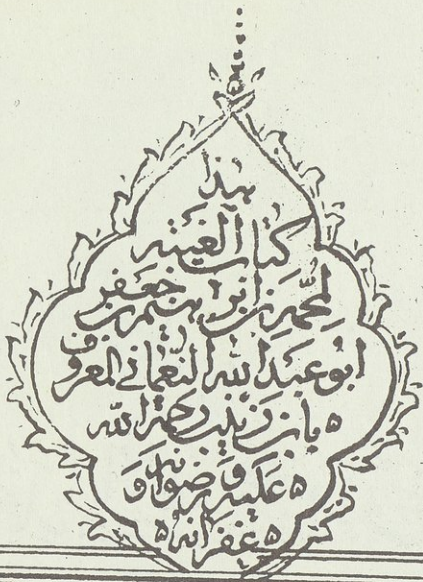 هذا
كتاب الغيبة
لمحمد بن ابرهيم بن جعفر
ابو عبد الله النعماني المعروف
بابن زينب رحمة الله
عليه و رضوانه و
غفرانه